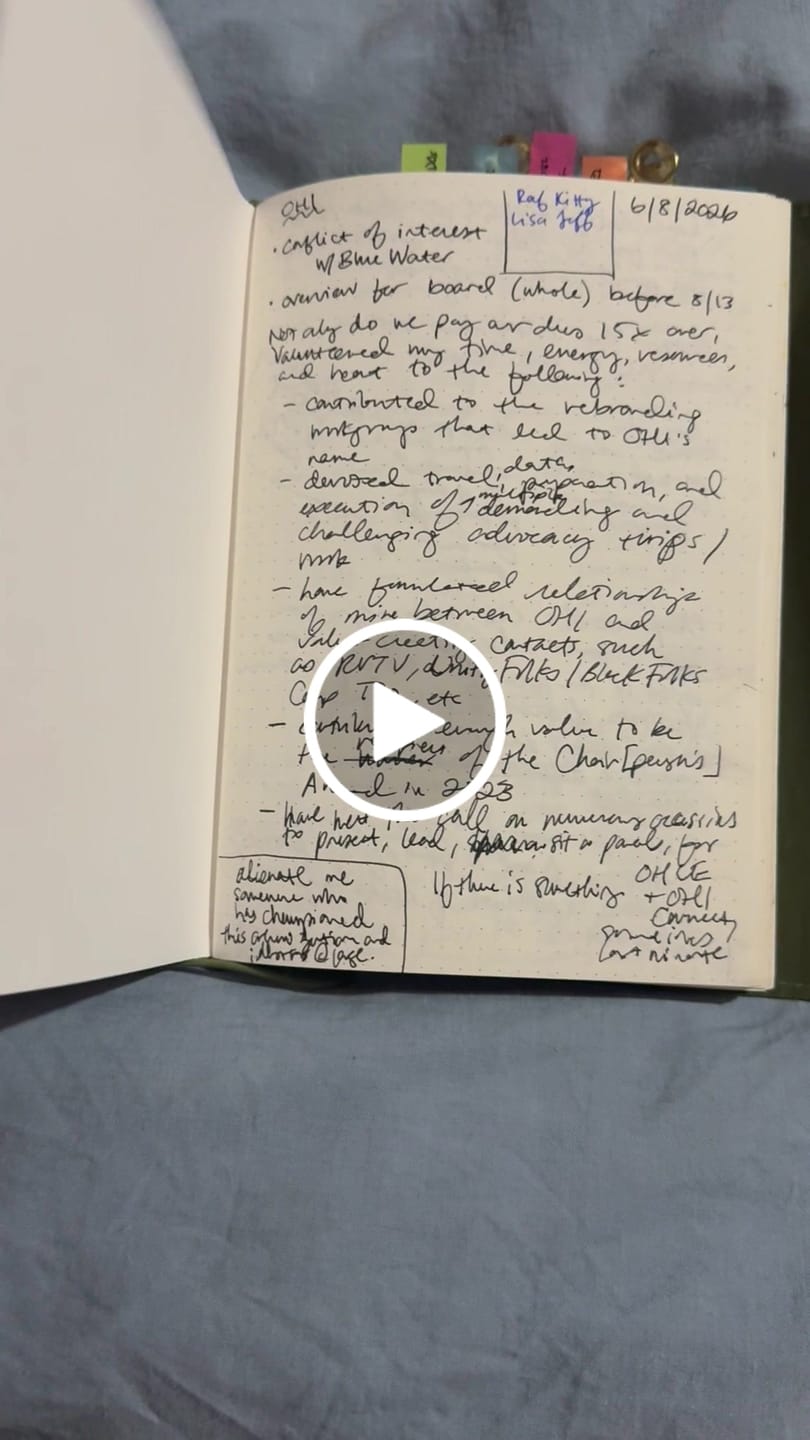 OHI
· conflict of interest
w/ Blue Water
Raf Kitty
Lisa Jeff
6/8/2026
· overview for board (whole) before 8/13
Not only do we pay our dues 15x over,
Volunteered my time, energy, resources,
and heart to the following:
- contributed to the rebranding
workgroups that led to OHI's
name
- devoted travel, data, preparation, and
execution of multiple demanding and
challenging advocacy trips /
work
- have relationships
of mine between OHI and
value-creating contacts, such
as RVTV, Folks / Black Folks
etc
- enough value to be
the of the Chair[person's]
in 2023
- have the call on numerous occasions
to present, lead, sit on panels, for
OHLE
+ OHI
Connect,
sometimes
last minute
If there is something
alienate me
someone who
has championed
this organization and